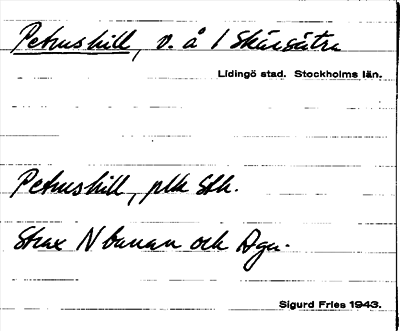 Petrushill, v. å 1 Skärsätra
Lidingö stad. Stockholms län.
Petrushill, plk Sth.
Strax N banan och Dgn.
Sigurd Fries 1943.